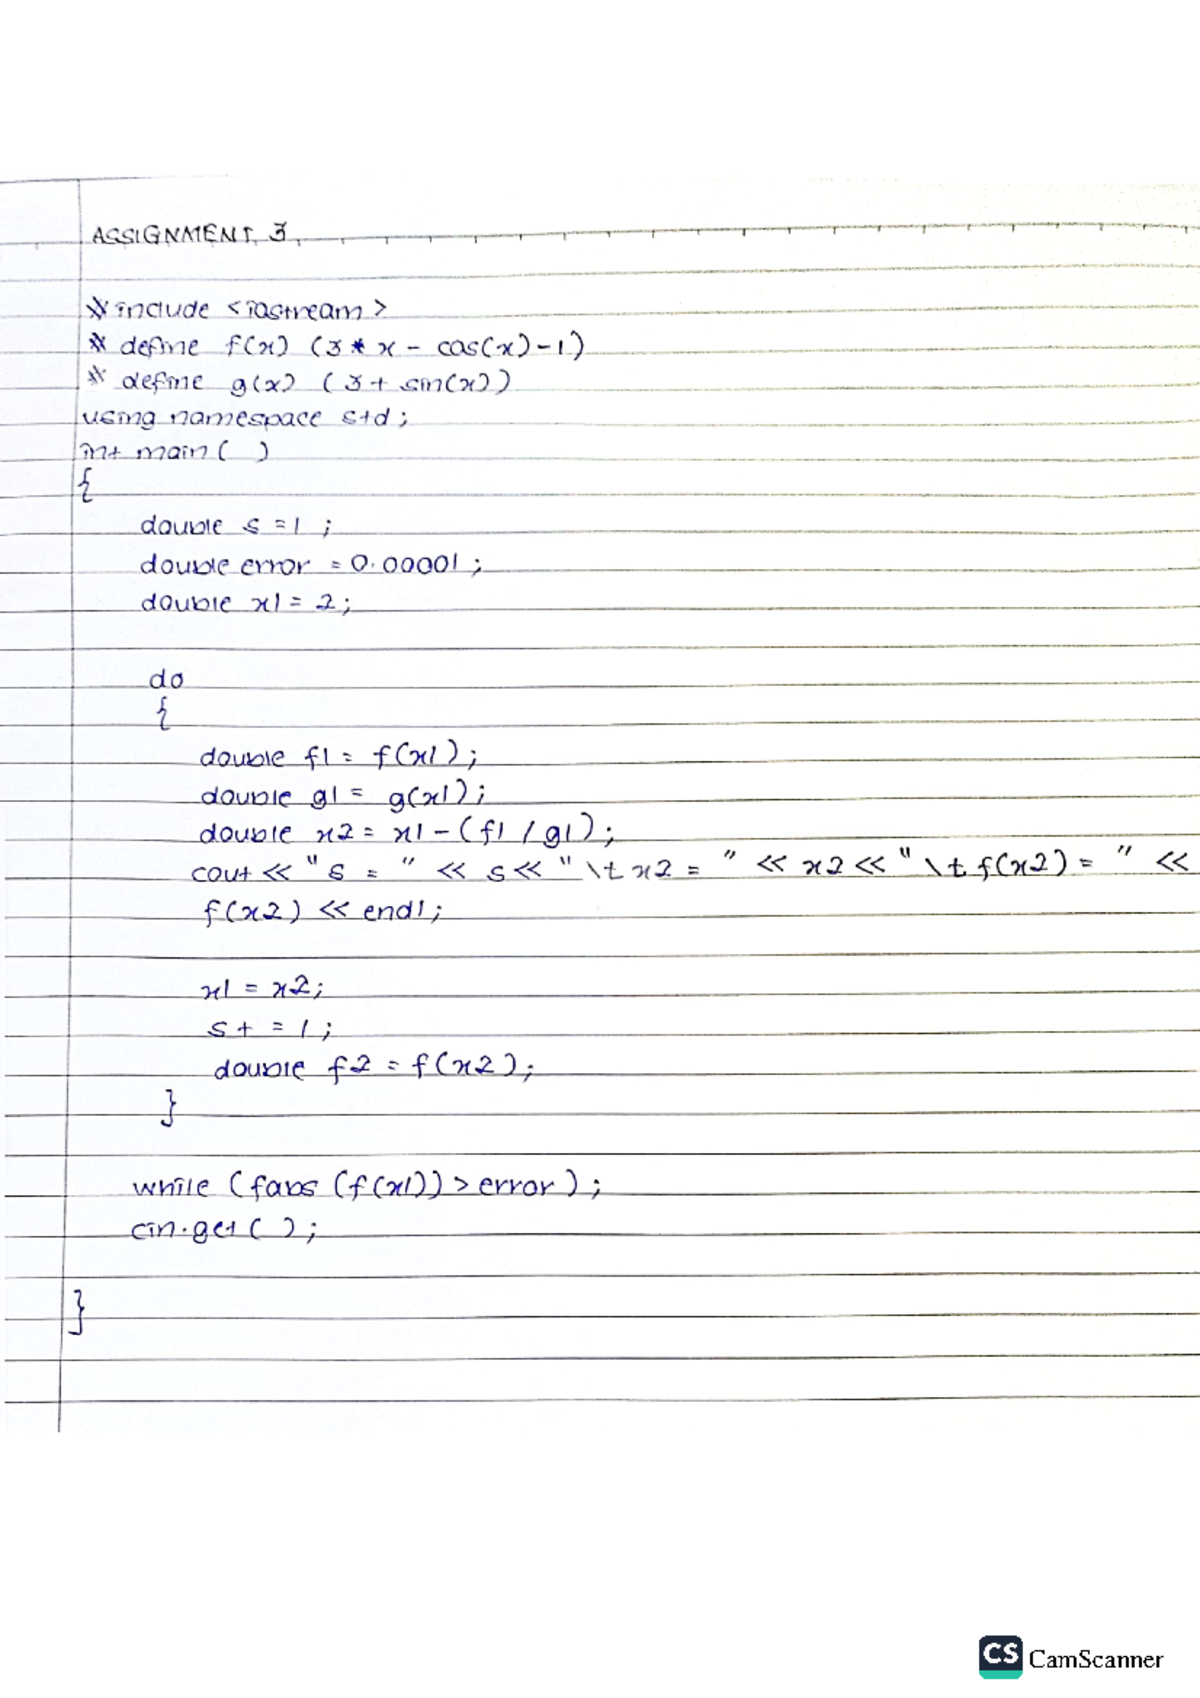 ASSIGNMENT 3
#include <iostream>
# define f(x) (3 * x - cos(x)-1)
# define g(x) (3+ sin(x))
using namespace std;
int main( )
{
double s =1 ;
double error = 0.00001 ;
double x1= 2;
do
{
double f1= f(x1);
double g1= g(x1);
double x2= x1-(f1 /g1);
cout << "S = " << s<< "\t x2 = " << x2 << "\t f(x2) = " <<
f(x2) << endl;
x1 = x2;
s+ = 1 ;
double f2 = f(x2);
}
while (fabs (f(x1))>error);
cin.get( );
}
CS CamScanner